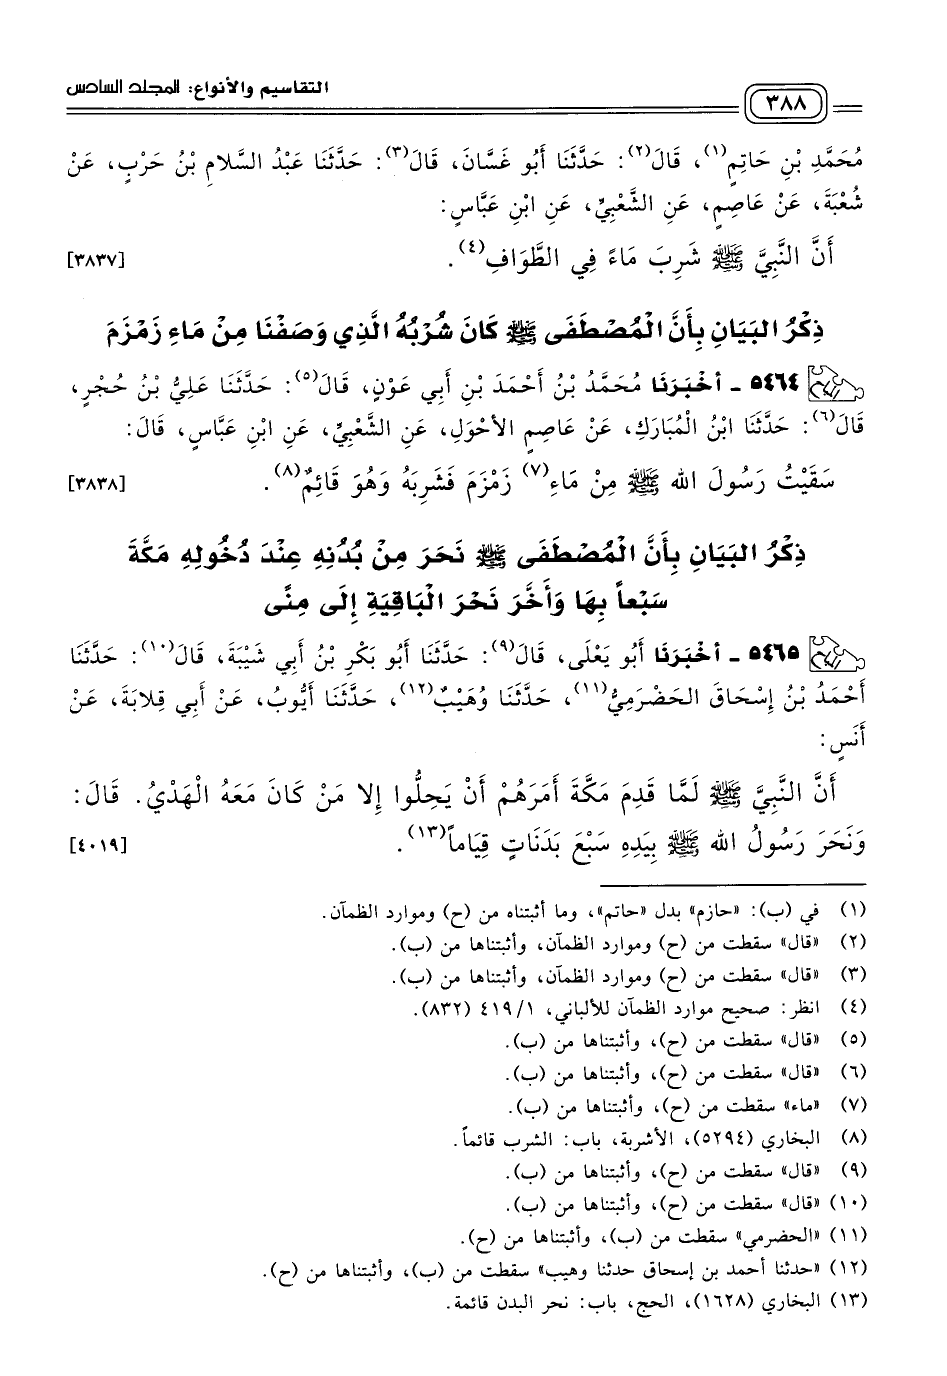 التقاسيم والأنواع: المجلد السادس
٣٨٨
مُحَمَّدِ بْنِ حَاتِمٍ(١)، قَالَ(٢): حَدَّثَنَا أَبُو غَسَّانَ، قَالَ(٣): حَدَّثَنَا عَبْدُ السَّلَامِ بْنُ حَرْبٍ، عَنْ
شُعْبَةَ، عَنْ عَاصِمٍ، عَنِ الشَّعْبِيِّ، عَنِ ابْنِ عَبَّاسٍ:
أَنَّ النَّبِيَّ ﷺ شَرِبَ مَاءً فِي الطَّوَافِ(٤). [٣٨٣٧]
ذِكْرُ البَيَانِ بِأَنَّ الْمُصْطَفَى ﷺ كَانَ شُرْبُهُ الَّذِي وَصَفْنَا مِنْ مَاءِ زَمْزَمَ
٥٤٦٤ - أخْبَرَنَا مُحَمَّدُ بْنُ أَحْمَدَ بْنِ أَبِي عَوْنٍ، قَالَ(٥): حَدَّثَنَا عَلِيُّ بْنُ حُجْرٍ،
قَالَ(٦): حَدَّثَنَا ابْنُ الْمُبَارَكِ، عَنْ عَاصِمٍ الأَحْوَلِ، عَنِ الشَّعْبِيِّ، عَنِ ابْنِ عَبَّاسٍ، قَالَ:
سَقَيْتُ رَسُولَ الله ﷺ مِنْ مَاءِ(٧) زَمْزَمَ فَشَرِبَهُ وَهُوَ قَائِمٌ(٨). [٣٨٣٨]
ذِكْرُ البَيَانِ بِأَنَّ الْمُصْطَفَى ﷺ نَحَرَ مِنْ بُدْنِهِ عِنْدَ دُخُولِهِ مَكَّةَ
سَبْعاً بِهَا وَأَخَّرَ نَحْرَ الْبَاقِيَةِ إِلَى مِنًى
٥٤٦٥ - أخْبَرَنَا أَبُو يَعْلَى، قَالَ(٩): حَدَّثَنَا أَبُو بَكْرِ بْنُ أَبِي شَيْبَةَ، قَالَ(١٠): حَدَّثَنَا
أَحْمَدُ بْنُ إِسْحَاقَ الحَضْرَمِيُّ(١١)، حَدَّثَنَا وُهَيْبٌ(١٢)، حَدَّثَنَا أَيُّوبُ، عَنْ أَبِي قِلابَةَ، عَنْ
أَنَسٍ:
أَنَّ النَّبِيَّ ﷺ لَمَّا قَدِمَ مَكَّةَ أَمَرَهُمْ أَنْ يَحِلُّوا إِلا مَنْ كَانَ مَعَهُ الْهَدْيُ. قَالَ:
وَنَحَرَ رَسُولُ الله ﷺ بِيَدِهِ سَبْعَ بَدَنَاتٍ قِيَاماً(١٣). [٤٠١٩]
(١) في (ب): «حازم» بدل «حاتم»، وما أثبتناه من (ح) وموارد الظمآن.
(٢) «قال» سقطت من (ح) وموارد الظمآن، وأثبتناها من (ب).
(٣) «قال» سقطت من (ح) وموارد الظمآن، وأثبتناها من (ب).
(٤) انظر: صحيح موارد الظمآن للألباني، ٤١٩/١ (٨٣٢).
(٥) «قال» سقطت من (ح)، وأثبتناها من (ب).
(٦) «قال» سقطت من (ح)، وأثبتناها من (ب).
(٧) «ماء» سقطت من (ح)، وأثبتناها من (ب).
(٨) البخاري (٥٢٩٤)، الأشربة، باب: الشرب قائماً.
(٩) «قال» سقطت من (ح)، وأثبتناها من (ب).
(١٠) «قال» سقطت من (ح)، وأثبتناها من (ب).
(١١) «الحضرمي» سقطت من (ب)، وأثبتناها من (ح).
(١٢) «حدثنا أحمد بن إسحاق حدثنا وهيب» سقطت من (ب)، وأثبتناها من (ح).
(١٣) البخاري (١٦٢٨)، الحج، باب: نحر البدن قائمة.